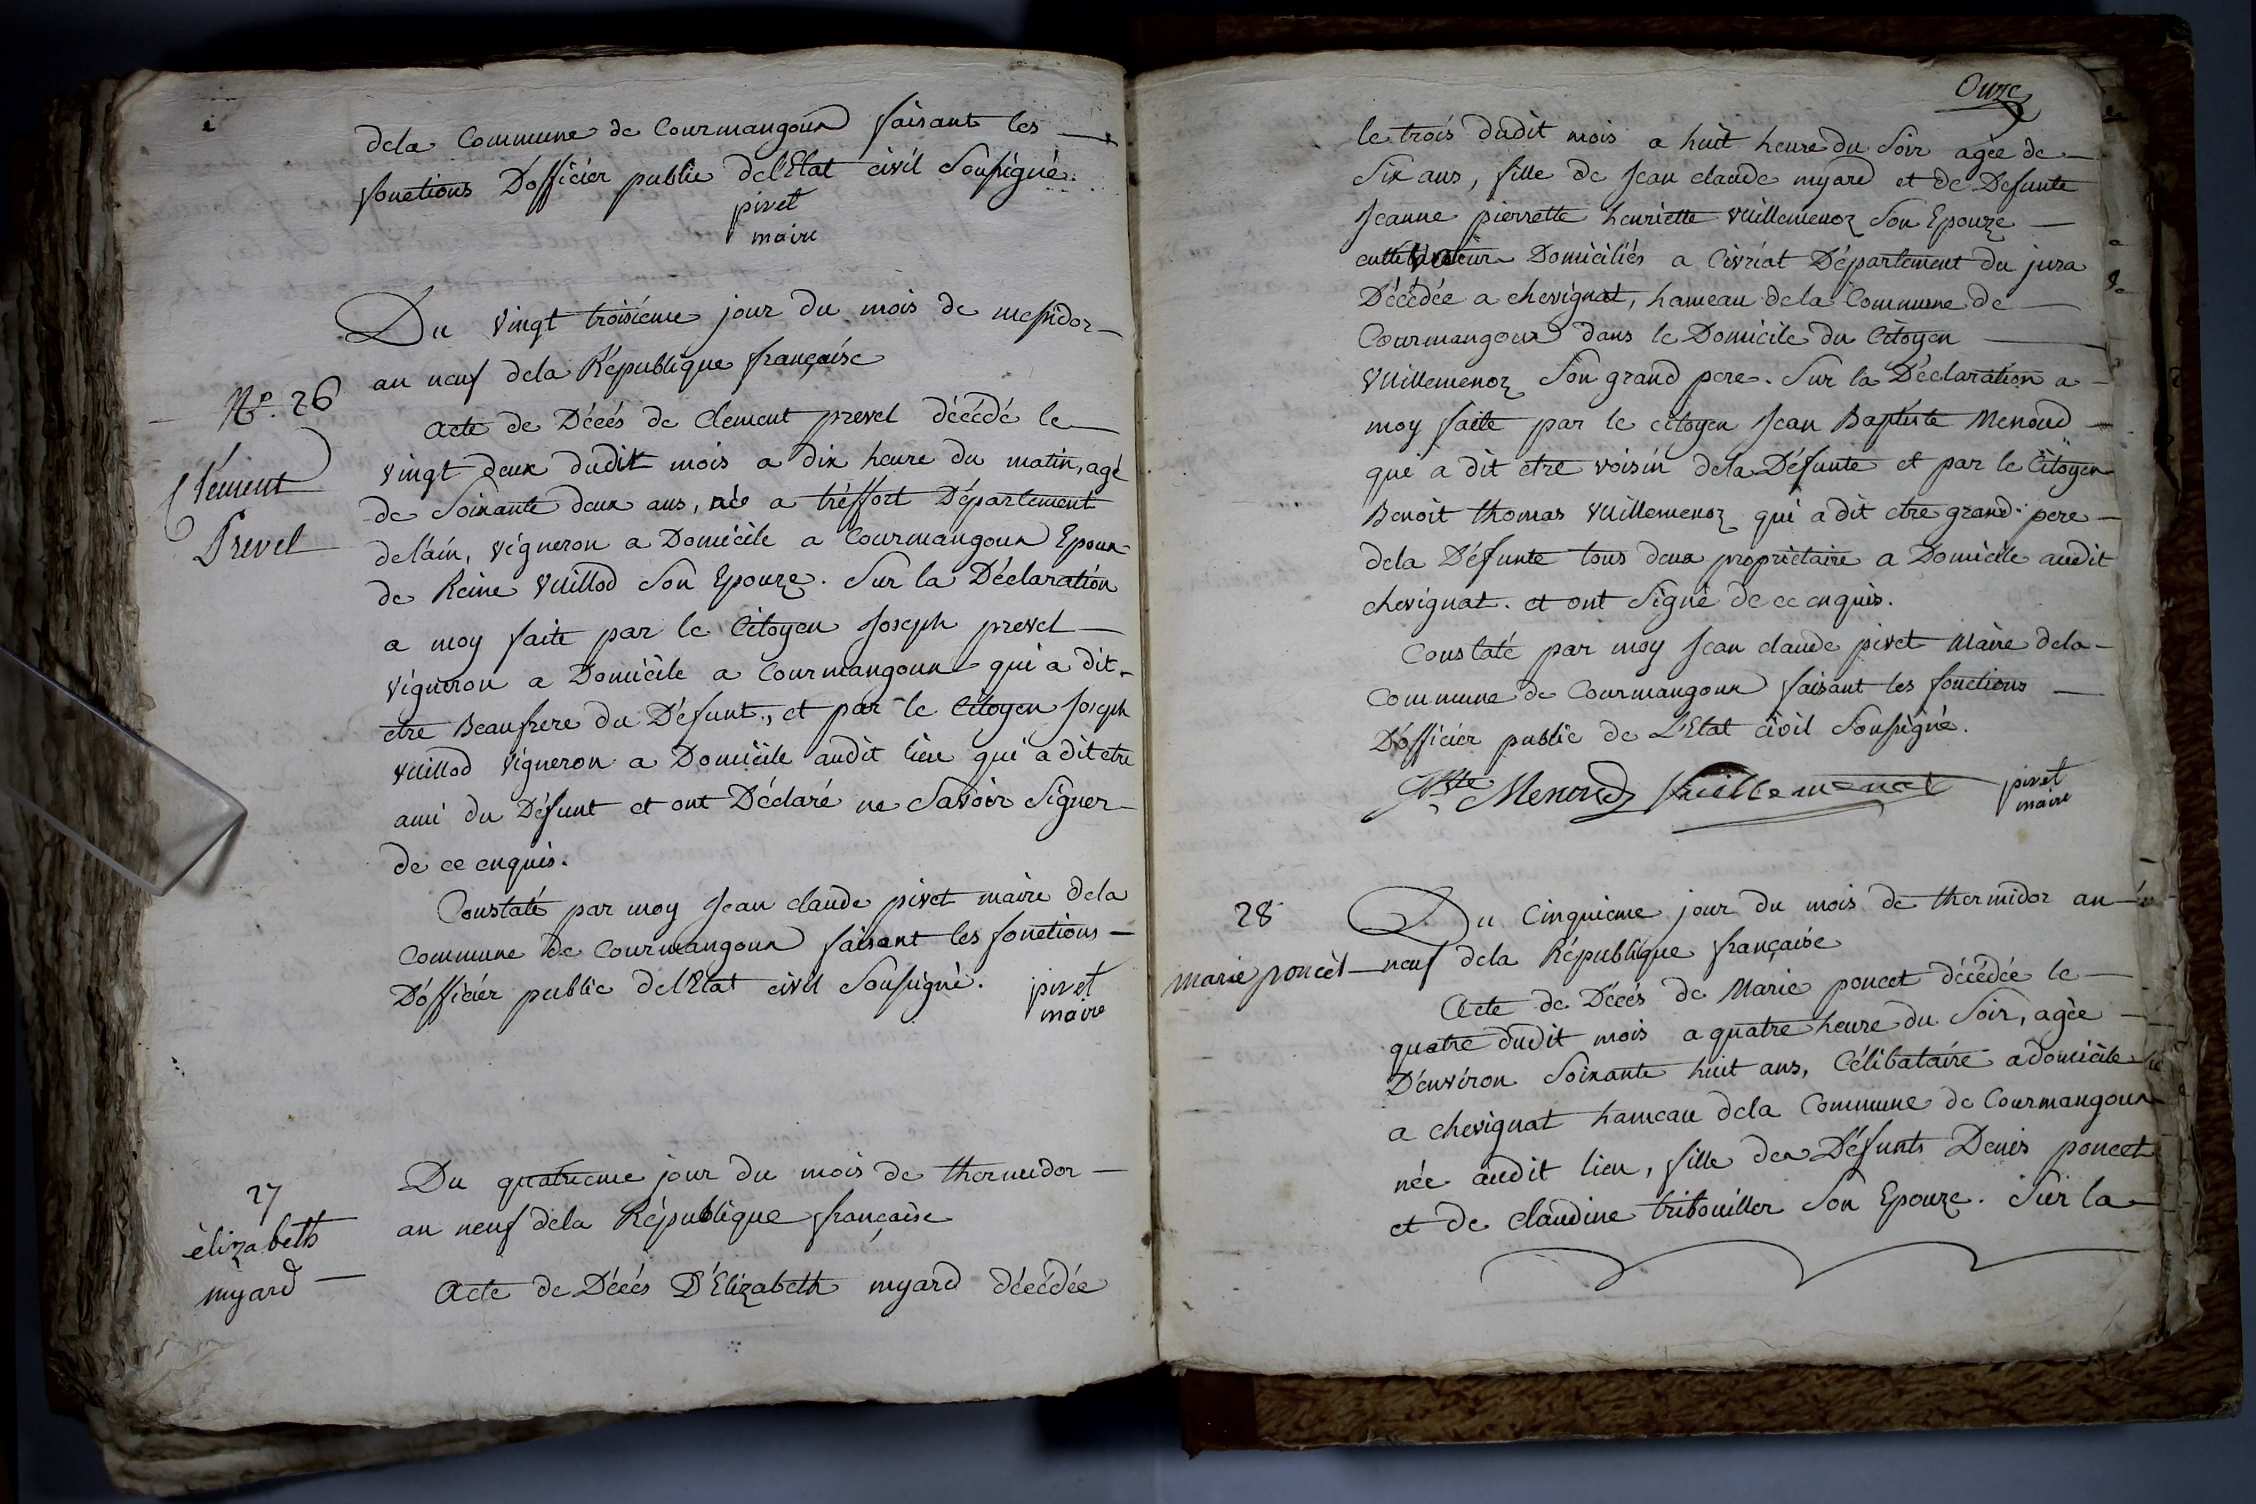 dela Commune de Courmangoux faisant les
fonctions D'officier public del'Etat civil Soussigné.
pivet
maire
Du vingt troisième jour du mois de messidor
an neuf dela République française
No. 26
Clément
Prevel
acte de Décés de Clement prevel décédé le
vingt deux dudit mois a dix heure du matin, agé
de Soixante deux ans, née a tréffort Département
delain, vigneron a Domicile a Courmangoux Epoux
de Reine vuillod Son Epouze. Sur la Déclaration
a moy faite par le Citoyen Joseph prevel
vigneron a Domicile a Courmangoux qui a dit
etre Beaufrere du Défunt, et par le Citoyen Joseph
vuillod vigneron a Domicile audit lieu qui a dit etre
ami du Défunt et ont Déclaré ne Savoir Signer
de ce enquis.
Constaté par moy Jean claude pivet maire dela
Commune de Courmangoux faisant les fonctions
D'officier public del'Etat civil Soussigné.
pivet
maire
27
élizabeth
myard
Du quatrieme jour du mois de thermidor
an neuf dela République française
Acte de Décés D'Elizabeth myard décédée
Onze
le trois dudit mois a huit heure du Soir agée de
Six ans, fille de Jean claude myard et de Defunte
Jeanne pierrette henriette vuillemenoz Son Epouze
cultivateur Domiciliés a Civriat Département du jura
Décédée a chevignat, hameau dela Commune de
Courmangoux dans le Domicile du Citoyen
Vuillemenoz Son grand pere. Sur la Déclaration a
moy faite par le citoyen Jean Baptiste Menoud
qui a dit etre voisin dela Défunte et par le Citoyen
Benoit thomas vuillemenoz qui a dit etre grand pere
dela Défunte tous deux proprietaire a Domicile audit
chevignat. et ont Signé de ce enquis.
Constaté par moy Jean claude pivet Maire dela
Commune de Courmangoux faisant les fonctions
D'officier public de L'Etat civil Soussigné.
Menoud Vuillemenot pivet
maire
28
marie poncet
Du Cinquieme jour du mois de thermidor an
neuf dela République française
Acte de Décés de Marie poncet décédée le
quatre dudit mois a quatre heure du Soir, agée
D'environ Soixante huit ans, Célibataire a domicile
a chevignat hameau dela Commune de Courmangoux
née audit lieu, fille des Défunts Denis poncet
et de claudine tribouiller Son Epouze. Sur la